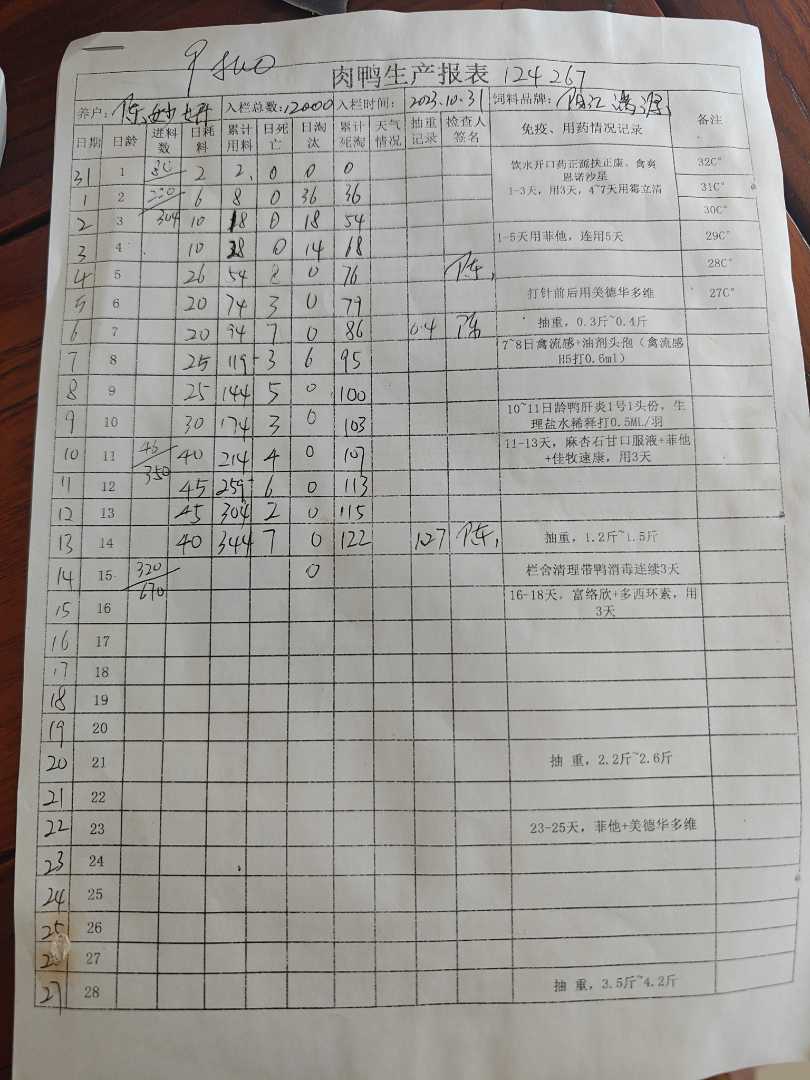 肉鸭生产报表 124267
养户: 陈妙 入栏总数: 12000 入栏时间: 2023.10.31 饲料品牌: 阳江
日期 日龄 进料数 日耗料 累计用料 日死亡 日淘汰 累计死淘 天气情况 抽重记录 检查人签名 免疫、用药情况记录 备注
31 1 80 2 2 0 0 0 饮水开口药正源扶正康、禽炎恩诺沙星 32C°
1 2 6 8 0 36 36 1-3天,用3天,4~7天用霉立清 31C°
2 3 304 10 18 0 18 54 30C°
3 4 10 28 0 14 68 1-5天用菲他,连用5天 29C°
4 5 26 54 8 0 76 陈 28C°
5 6 20 74 3 0 79 打针前后用美德华多维 27C°
6 7 20 94 7 0 86 0.4 陈 抽重,0.3斤~0.4斤
7 8 25 119 3 6 95 7~8日禽流感+油剂头孢(禽流感H5打0.6ml)
8 9 25 144 5 0 100
9 10 30 174 3 0 103 10~11日龄鸭肝炎1号1头份,生理盐水稀释打0.5ML/羽
10 11 46 350 40 214 4 0 107 11-13天,麻杏石甘口服液+菲他+佳牧速康,用3天
11 12 45 259 6 0 113
12 13 45 304 2 0 115
13 14 40 344 7 0 122 1.27 陈 抽重,1.2斤~1.5斤
14 15 320 670 0 栏舍清理带鸭消毒连续3天
15 16 16-18天,富络欣+多西环素,用3天
16 17
17 18
18 19
19 20
20 21 抽 重,2.2斤~2.6斤
21 22
22 23 23-25天,菲他+美德华多维
23 24
24 25
25 26
27
27 28 抽 重,3.5斤~4.2斤